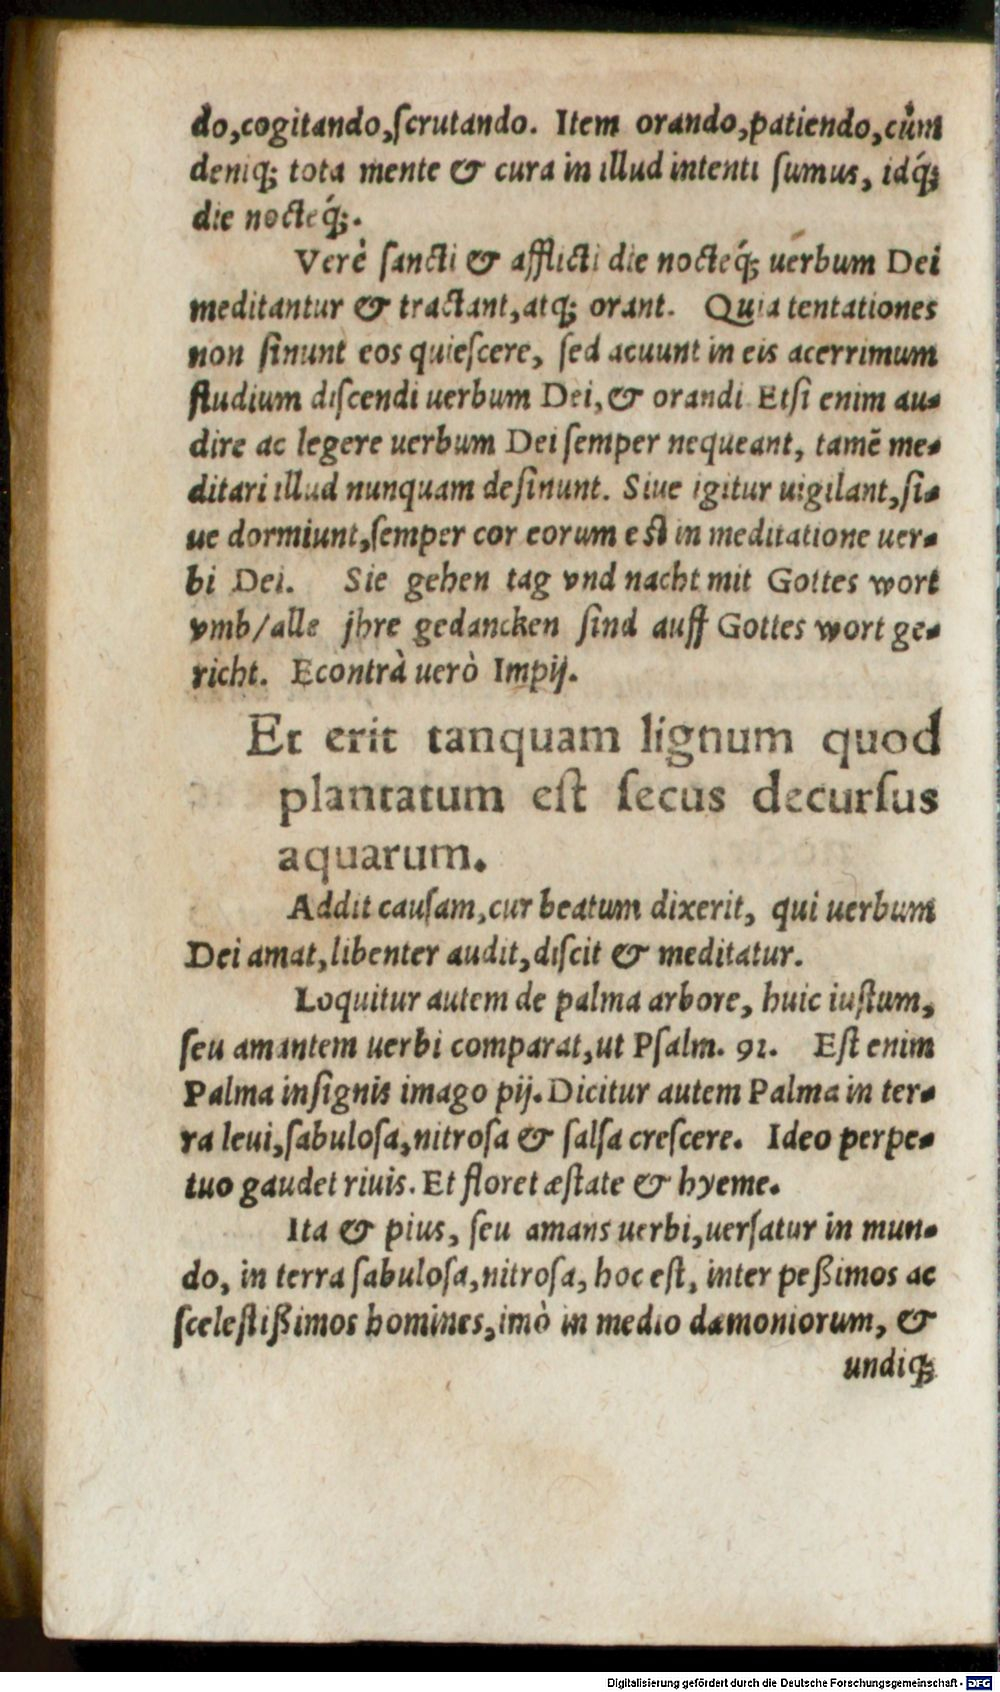 do,cogitando,ſcrutando. Item orando,patiendo,cùm
deniq; tota mente & cura in illud intenti ſumus, idq́;
die nocteq́;.
Verè ſancti & afflicti die nocteq́; uerbum Dei
meditantur & tractant,atq; orant. Quia tentationes
non ſinunt eos quieſcere, ſed acuunt in eis acerrimum
ſtudium diſcendi uerbum Dei,& orandi Etſi enim au-
dire ac legere uerbum Dei ſemper nequeant, tamē me-
ditari illud nunquam deſinunt. Siue igitur uigilant,ſi-
ue dormiunt,ſemper cor eorum eſt in meditatione uer-
bi Dei. Sie gehen tag vnd nacht mit Gottes wort
vmb/alle jhre gedancken ſind auff Gottes wort ge-
richt. Econtrà uerò Impij.
Et erit tanquam lignum quod
plantatum eſt ſecus decurſus
aquarum.
Addit cauſam,cur beatum dixerit, qui uerbum
Dei amat,libenter audit,diſcit & meditatur.
Loquitur autem de palma arbore, huic iuſtum,
ſeu amantem uerbi comparat,ut Pſalm. 92. Eſt enim
Palma inſignis imago pij. Dicitur autem Palma in ter-
ra leui,ſabuloſa,nitroſa & ſalſa creſcere. Ideo perpe-
tuo gaudet riuis. Et floret æſtate & hyeme.
Ita & pius, ſeu amans uerbi,uerſatur in mun-
do, in terra ſabuloſa,nitroſa, hoc eſt, inter peßimos ac
ſceleſtißimos homines,imò in medio dæmoniorum, &
undiq;
Digitalisierung gefördert durch die Deutsche Forschungsgemeinschaft - DFG